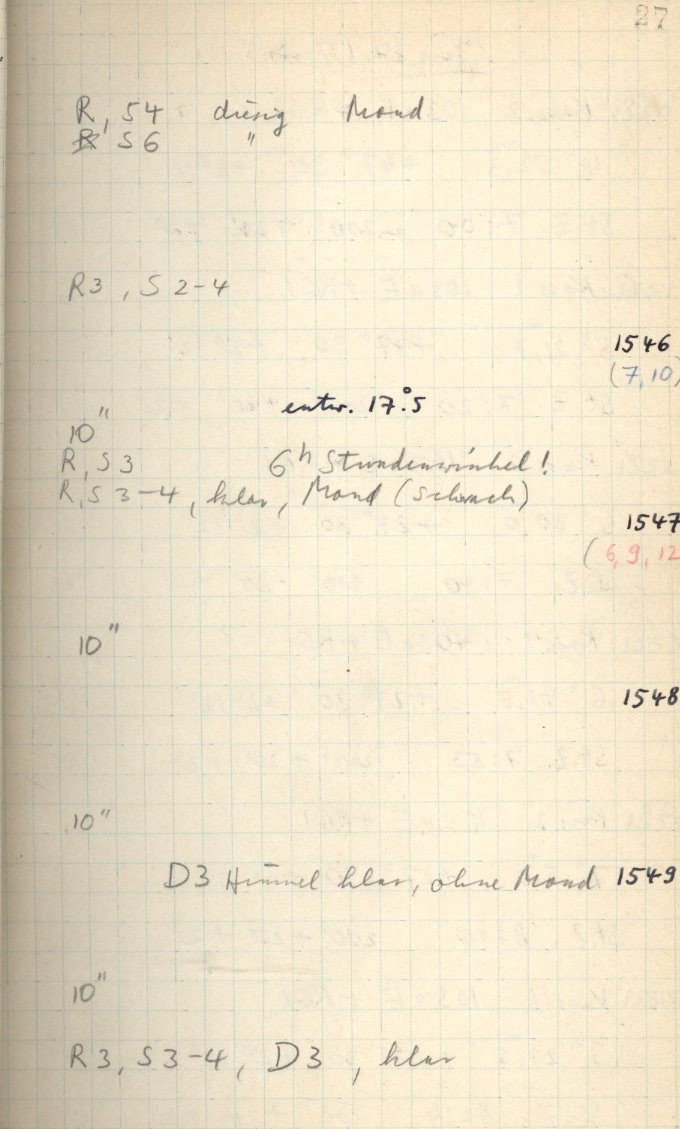 27
R, S4 diesig Mond
S6 "
R3, S2-4
1546
(7, 10)
entw. 17.°5
10"
R, S3 6h Stundenwinkel!
R, S3-4, klar, Mond (schwach)
1547
(6, 9, 12
10"
1548
10"
D3 Himmel klar, ohne Mond 1549
10"
R3, S3-4, D3, klar